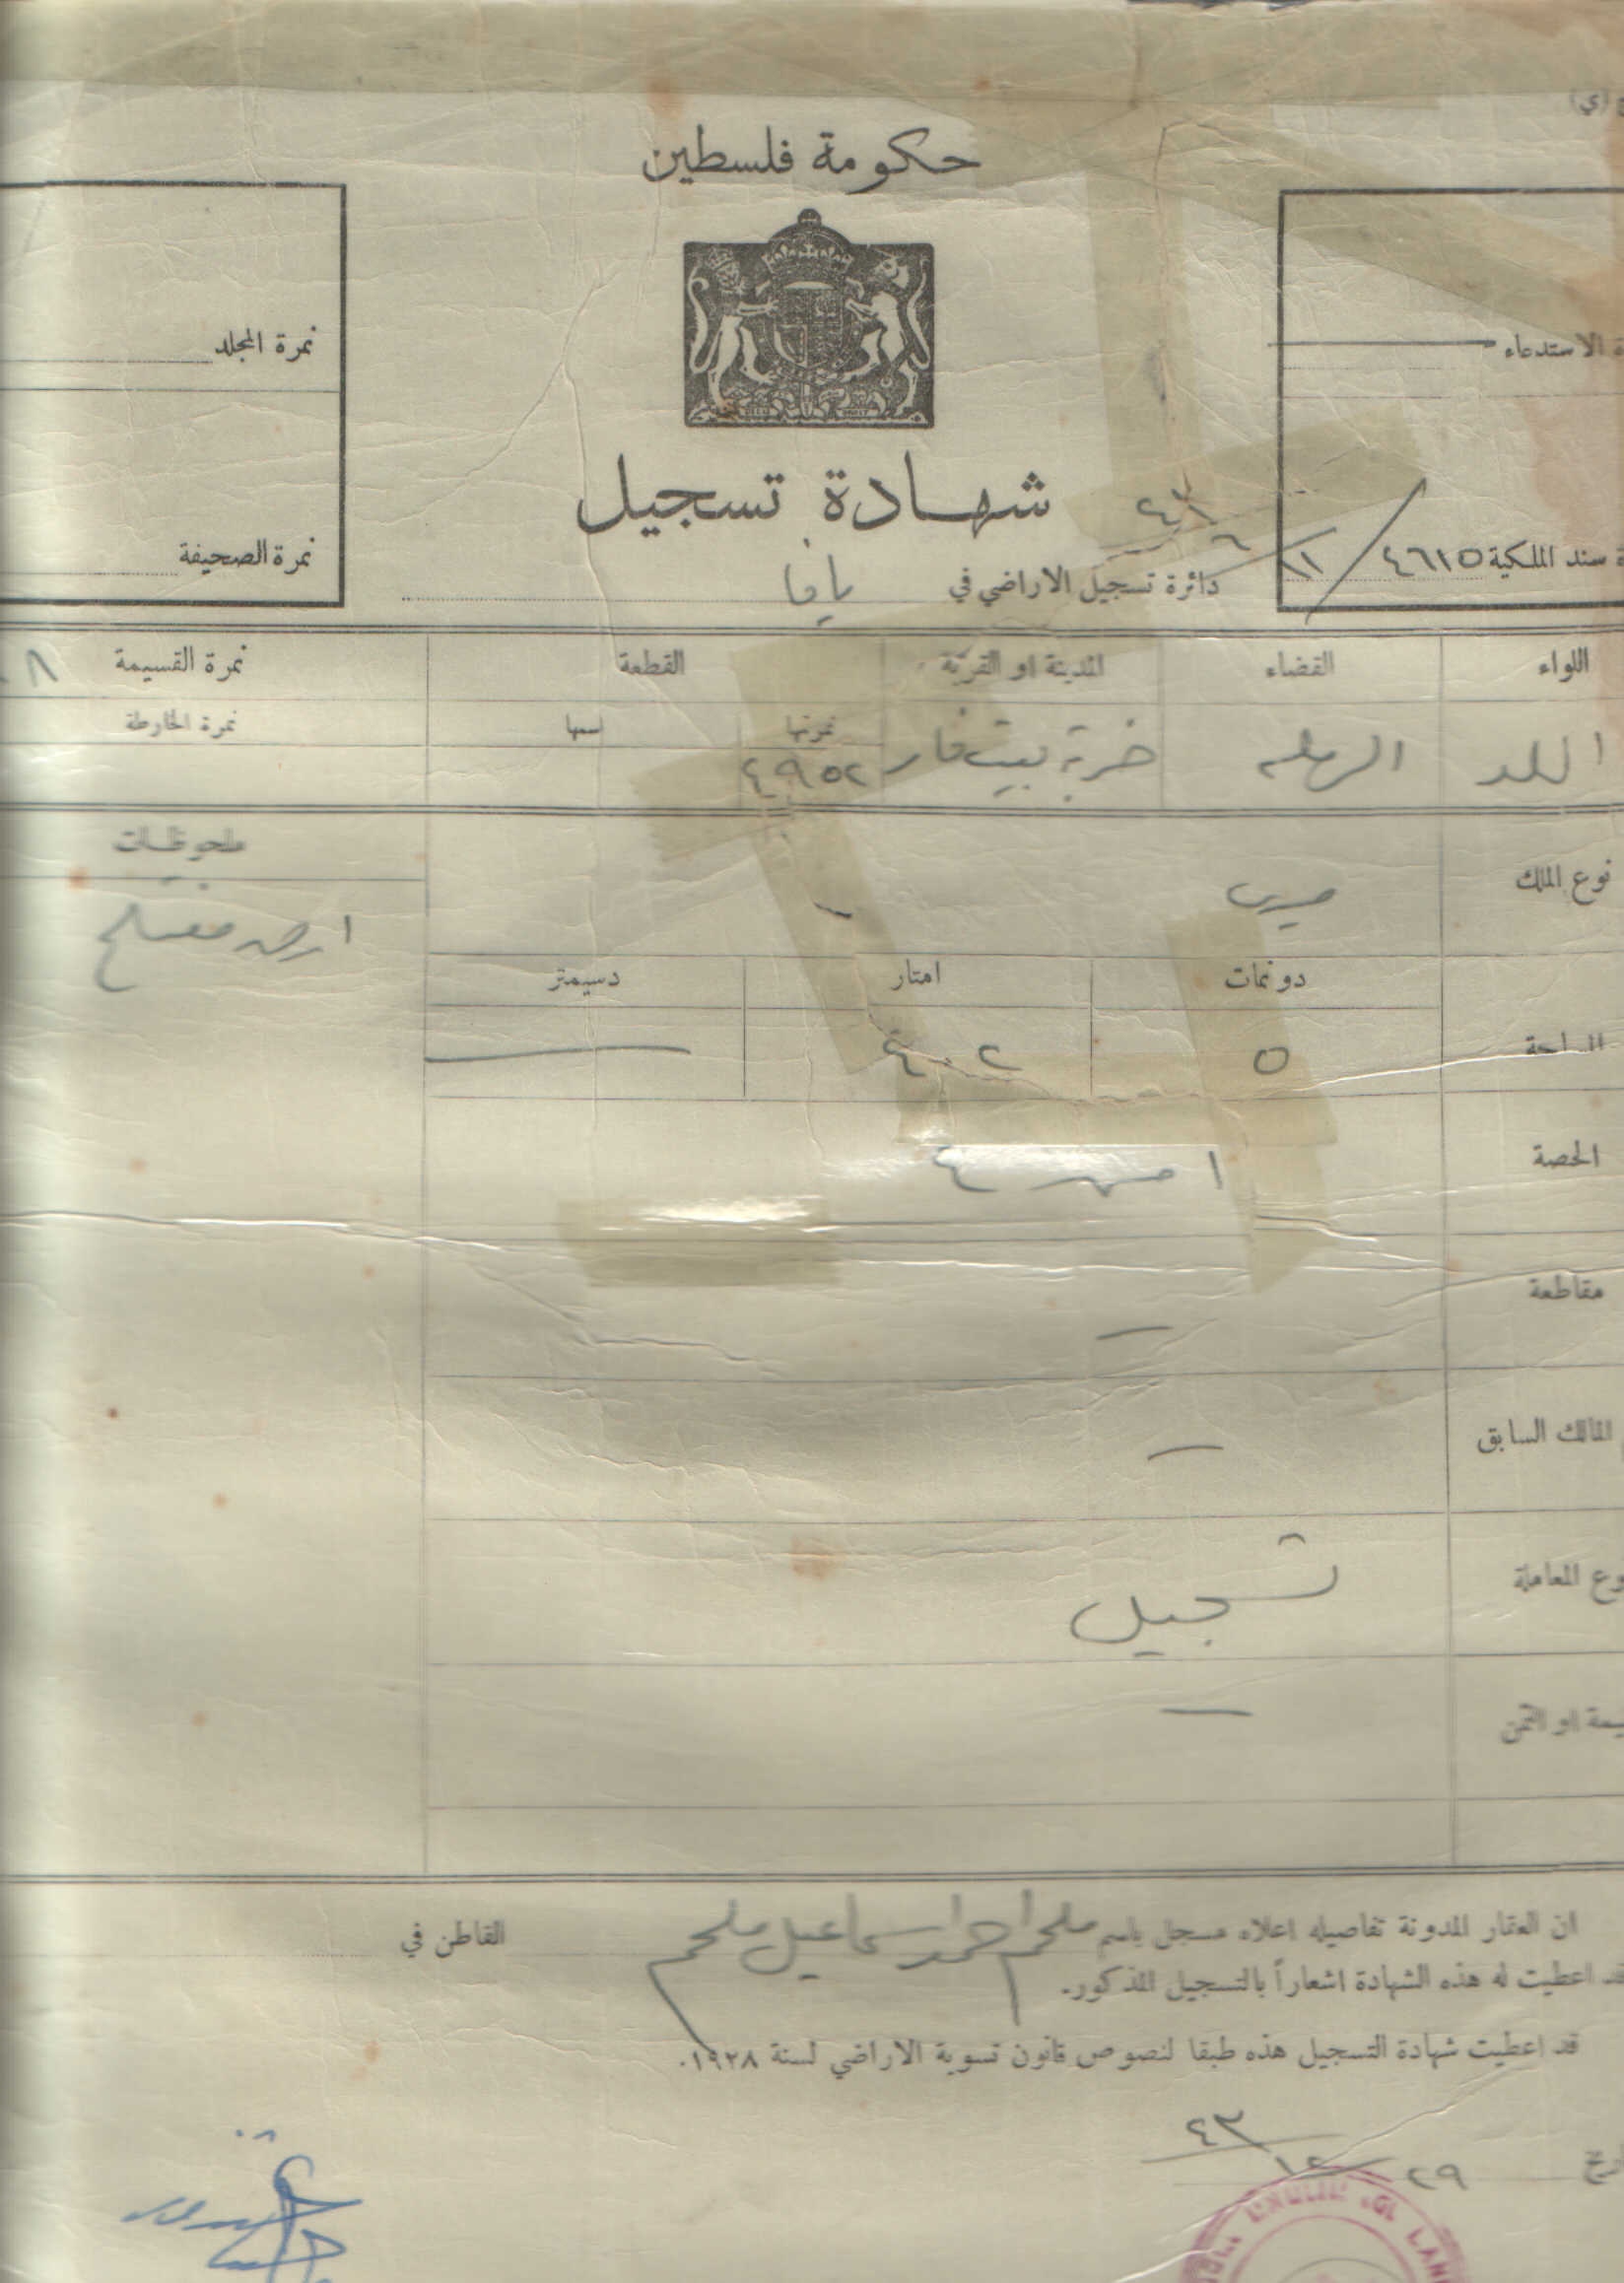 (ي)
حكومة فلسطين
نمرة المجلد
الاستدعاء
شهادة تسجيل
٤٣
٦
١١
نمرة الصحيفة
سند الملكية ٤٦١٥
دائرة تسجيل الاراضي في يافا
اللواء القضاء المدينة او القرية القطعة نمرة القسيمة ٨
نمرتها اسمها نمرة الخارطة
اللد الرملة خربة بيت فار ٤٩٥٢
ملحوظات
نوع الملك ميري
ارض مفتلح
دونمات امتار دسيمتر
المساحة ٥ ٤٠٢
الحصة ١ من ٤
مقاطعة —
المالك السابق —
نوع المعاملة تسجيل
او الثمن —
ان العقار المدونة تفاصيله اعلاه مسجل باسم ملحم احمد اسماعيل ملحم القاطن في
قد اعطيت له هذه الشهادة اشعاراً بالتسجيل المذكور.
قد اعطيت شهادة التسجيل هذه طبقا لنصوص قانون تسوية الاراضي لسنة ١٩٢٨.
٢٩/١٢/٤٣